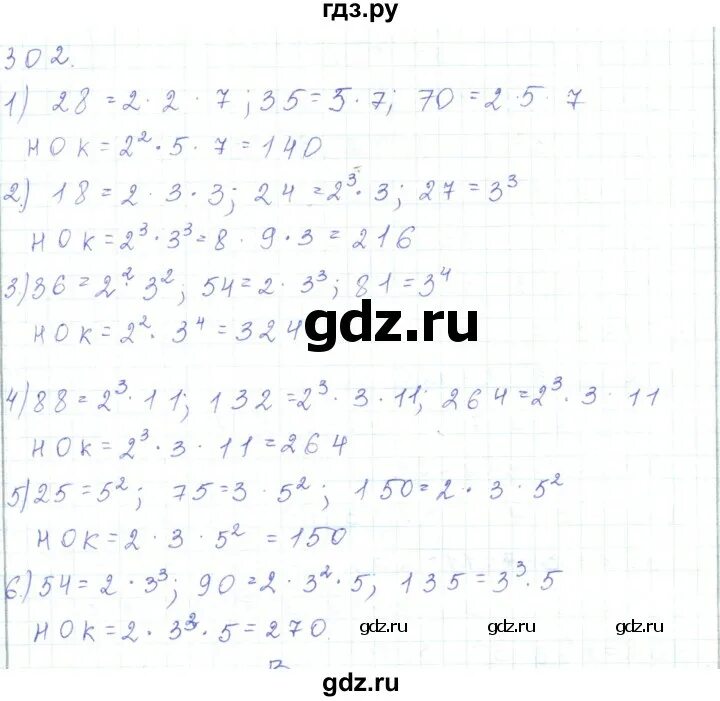 гдз.ру
302.
1) 28 = 2 · 2 · 7; 35 = 5 · 7; 70 = 2 · 5 · 7
НОК = 2² · 5 · 7 = 140
2) 18 = 2 · 3 · 3; 24 = 2³ · 3; 27 = 3³
НОК = 2³ · 3³ = 8 · 9 · 3 = 216
3) 36 = 2² · 3²; 54 = 2 · 3³; 81 = 3⁴
НОК = 2² · 3⁴ = 324
gdz.ru
4) 88 = 2³ · 11; 132 = 2³ · 3 · 11; 264 = 2³ · 3 · 11
НОК = 2³ · 3 · 11 = 264
5) 25 = 5²; 75 = 3 · 5²; 150 = 2 · 3 · 5²
НОК = 2 · 3 · 5² = 150
6) 54 = 2 · 3³; 90 = 2 · 3² · 5; 135 = 3³ · 5
НОК = 2 · 3³ · 5 = 270.
gdz.ru gdz.ru gdz.ru
gdz.ru